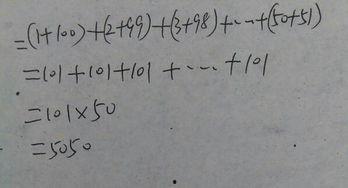 =(1+100)+(2+99)+(3+98)+……+(50+51)
=101+101+101 +……+101
=101×50
=5050